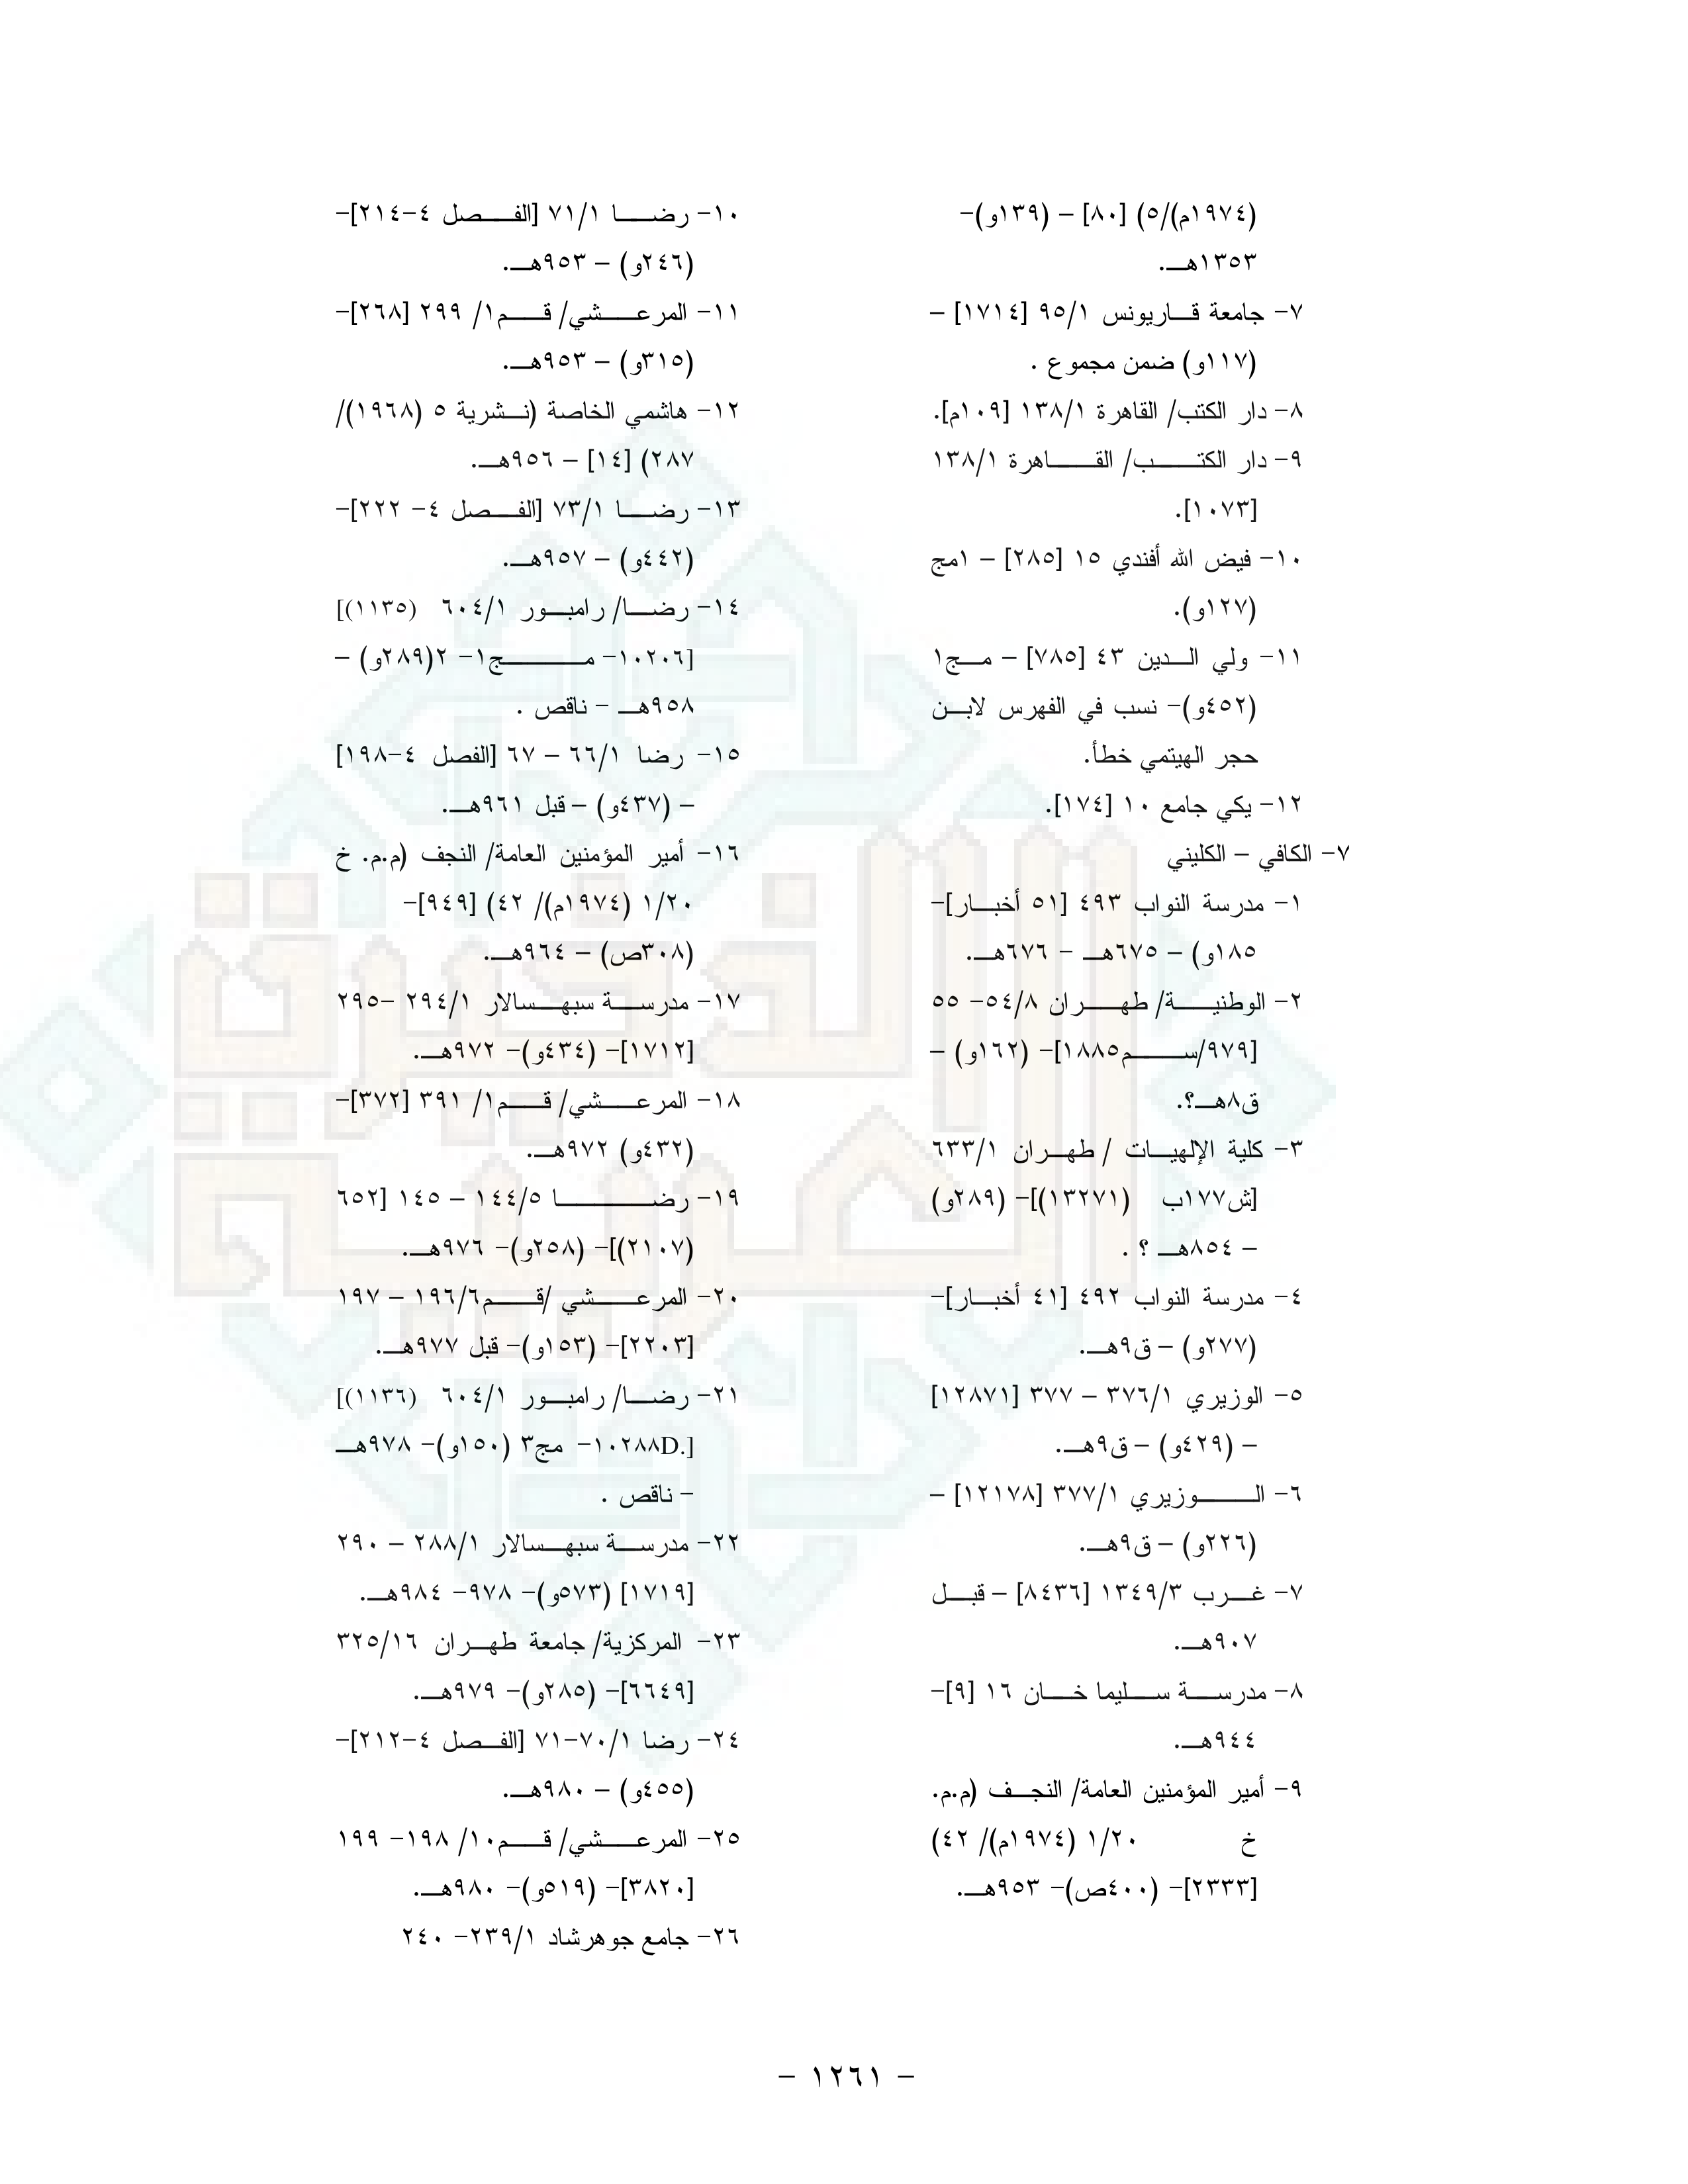 (١٩٧٤م)/٥) [٨٠] – (١٣٩و)-
١٣٥٣هـ.
٧- جامعة قاريونس ٩٥/١ [١٧١٤] –
(١١٧و) ضمن مجموع .
٨- دار الكتب/ القاهرة ١٣٨/١ [١٠٩م].
٩- دار الكتب/ القاهرة ١٣٨/١
[١٠٧٣].
١٠- فيض الله أفندي ١٥ [٢٨٥] – ١مج
(١٢٧و).
١١- ولي الدين ٤٣ [٧٨٥] – مج١
(٤٥٢و)- نسب في الفهرس لابن
حجر الهيتمي خطأ.
١٢- يكي جامع ١٠ [١٧٤].
٧- الكافي – الكليني
١- مدرسة النواب ٤٩٣ [٥١ أخبار]-
١٨٥و) – ٦٧٥هـ - ٦٧٦هـ.
٢- الوطنية/ طهران ٥٤/٨- ٥٥
[٩٧٩/سم١٨٨٥]- (١٦٢و) –
ق٨هـ؟.
٣- كلية الإلهيات / طهران ٦٣٣/١
[ش١٧٧ب (١٣٢٧١)]- (٢٨٩و)
– ٨٥٤هـ ؟ .
٤- مدرسة النواب ٤٩٢ [٤١ أخبار]-
(٢٧٧و) – ق٩هـ.
٥- الوزيري ٣٧٦/١ – ٣٧٧ [١٢٨٧١]
– (٤٢٩و) – ق٩هـ.
٦- الوزيري ٣٧٧/١ [١٢١٧٨] –
(٢٢٦و) – ق٩هـ.
٧- غرب ١٣٤٩/٣ [٨٤٣٦] – قبل
٩٠٧هـ.
٨- مدرسة سليما خان ١٦ [٩]-
٩٤٤هـ.
٩- أمير المؤمنين العامة/ النجف (م.م.
خ ١/٢٠ (١٩٧٤م)/ ٤٢)
[٢٣٣٣]- (٤٠٠ص)- ٩٥٣هـ.
١٠- رضا ٧١/١ [الفصل ٤-٢١٤]-
(٢٤٦و) – ٩٥٣هـ.
١١- المرعشي/ قم١/ ٢٩٩ [٢٦٨]-
(٣١٥و) – ٩٥٣هـ.
١٢- هاشمي الخاصة (نشرية ٥ (١٩٦٨)/
٢٨٧) [١٤] – ٩٥٦هـ.
١٣- رضا ٧٣/١ [الفصل ٤- ٢٢٢]-
(٤٤٢و) – ٩٥٧هـ.
١٤- رضا/ رامبور ٦٠٤/١ (١١٣٥)]
[١٠٢٠٦- مج١- ٢(٢٨٩و) –
٩٥٨هـ - ناقص .
١٥- رضا ٦٦/١ – ٦٧ [الفصل ٤-١٩٨]
– (٤٣٧و) – قبل ٩٦١هـ.
١٦- أمير المؤمنين العامة/ النجف (م.م. خ
١/٢٠ (١٩٧٤م)/ ٤٢) [٩٤٩]-
(٣٠٨ص) – ٩٦٤هـ.
١٧- مدرسة سبهسالار ٢٩٤/١ -٢٩٥
[١٧١٢]- (٤٣٤و)- ٩٧٢هـ.
١٨- المرعشي/ قم١/ ٣٩١ [٣٧٢]-
(٤٣٢و) ٩٧٢هـ.
١٩- رضا ١٤٤/٥ – ١٤٥ [٦٥٢
(٢١٠٧)]- (٢٥٨و)- ٩٧٦هـ.
٢٠- المرعشي /قم١٩٦/٦ – ١٩٧
[٢٢٠٣]- (١٥٣و)- قبل ٩٧٧هـ.
٢١- رضا/ رامبور ٦٠٤/١ (١١٣٦)]
[.١٠٢٨٨D- مج٣ (١٥٠و)- ٩٧٨هـ
- ناقص .
٢٢- مدرسة سبهسالار ٢٨٨/١ – ٢٩٠
[١٧١٩] (٥٧٣و)- ٩٧٨- ٩٨٤هـ.
٢٣- المركزية/ جامعة طهران ٣٢٥/١٦
[٦٦٤٩]- (٢٨٥و)- ٩٧٩هـ.
٢٤- رضا ٧٠/١-٧١ [الفصل ٤-٢١٢]-
(٤٥٥و) – ٩٨٠هـ.
٢٥- المرعشي/ قم١٠/ ١٩٨- ١٩٩
[٣٨٢٠]- (٥١٩و)- ٩٨٠هـ.
٢٦- جامع جوهرشاد ٢٣٩/١- ٢٤٠
– ١٢٦١ –